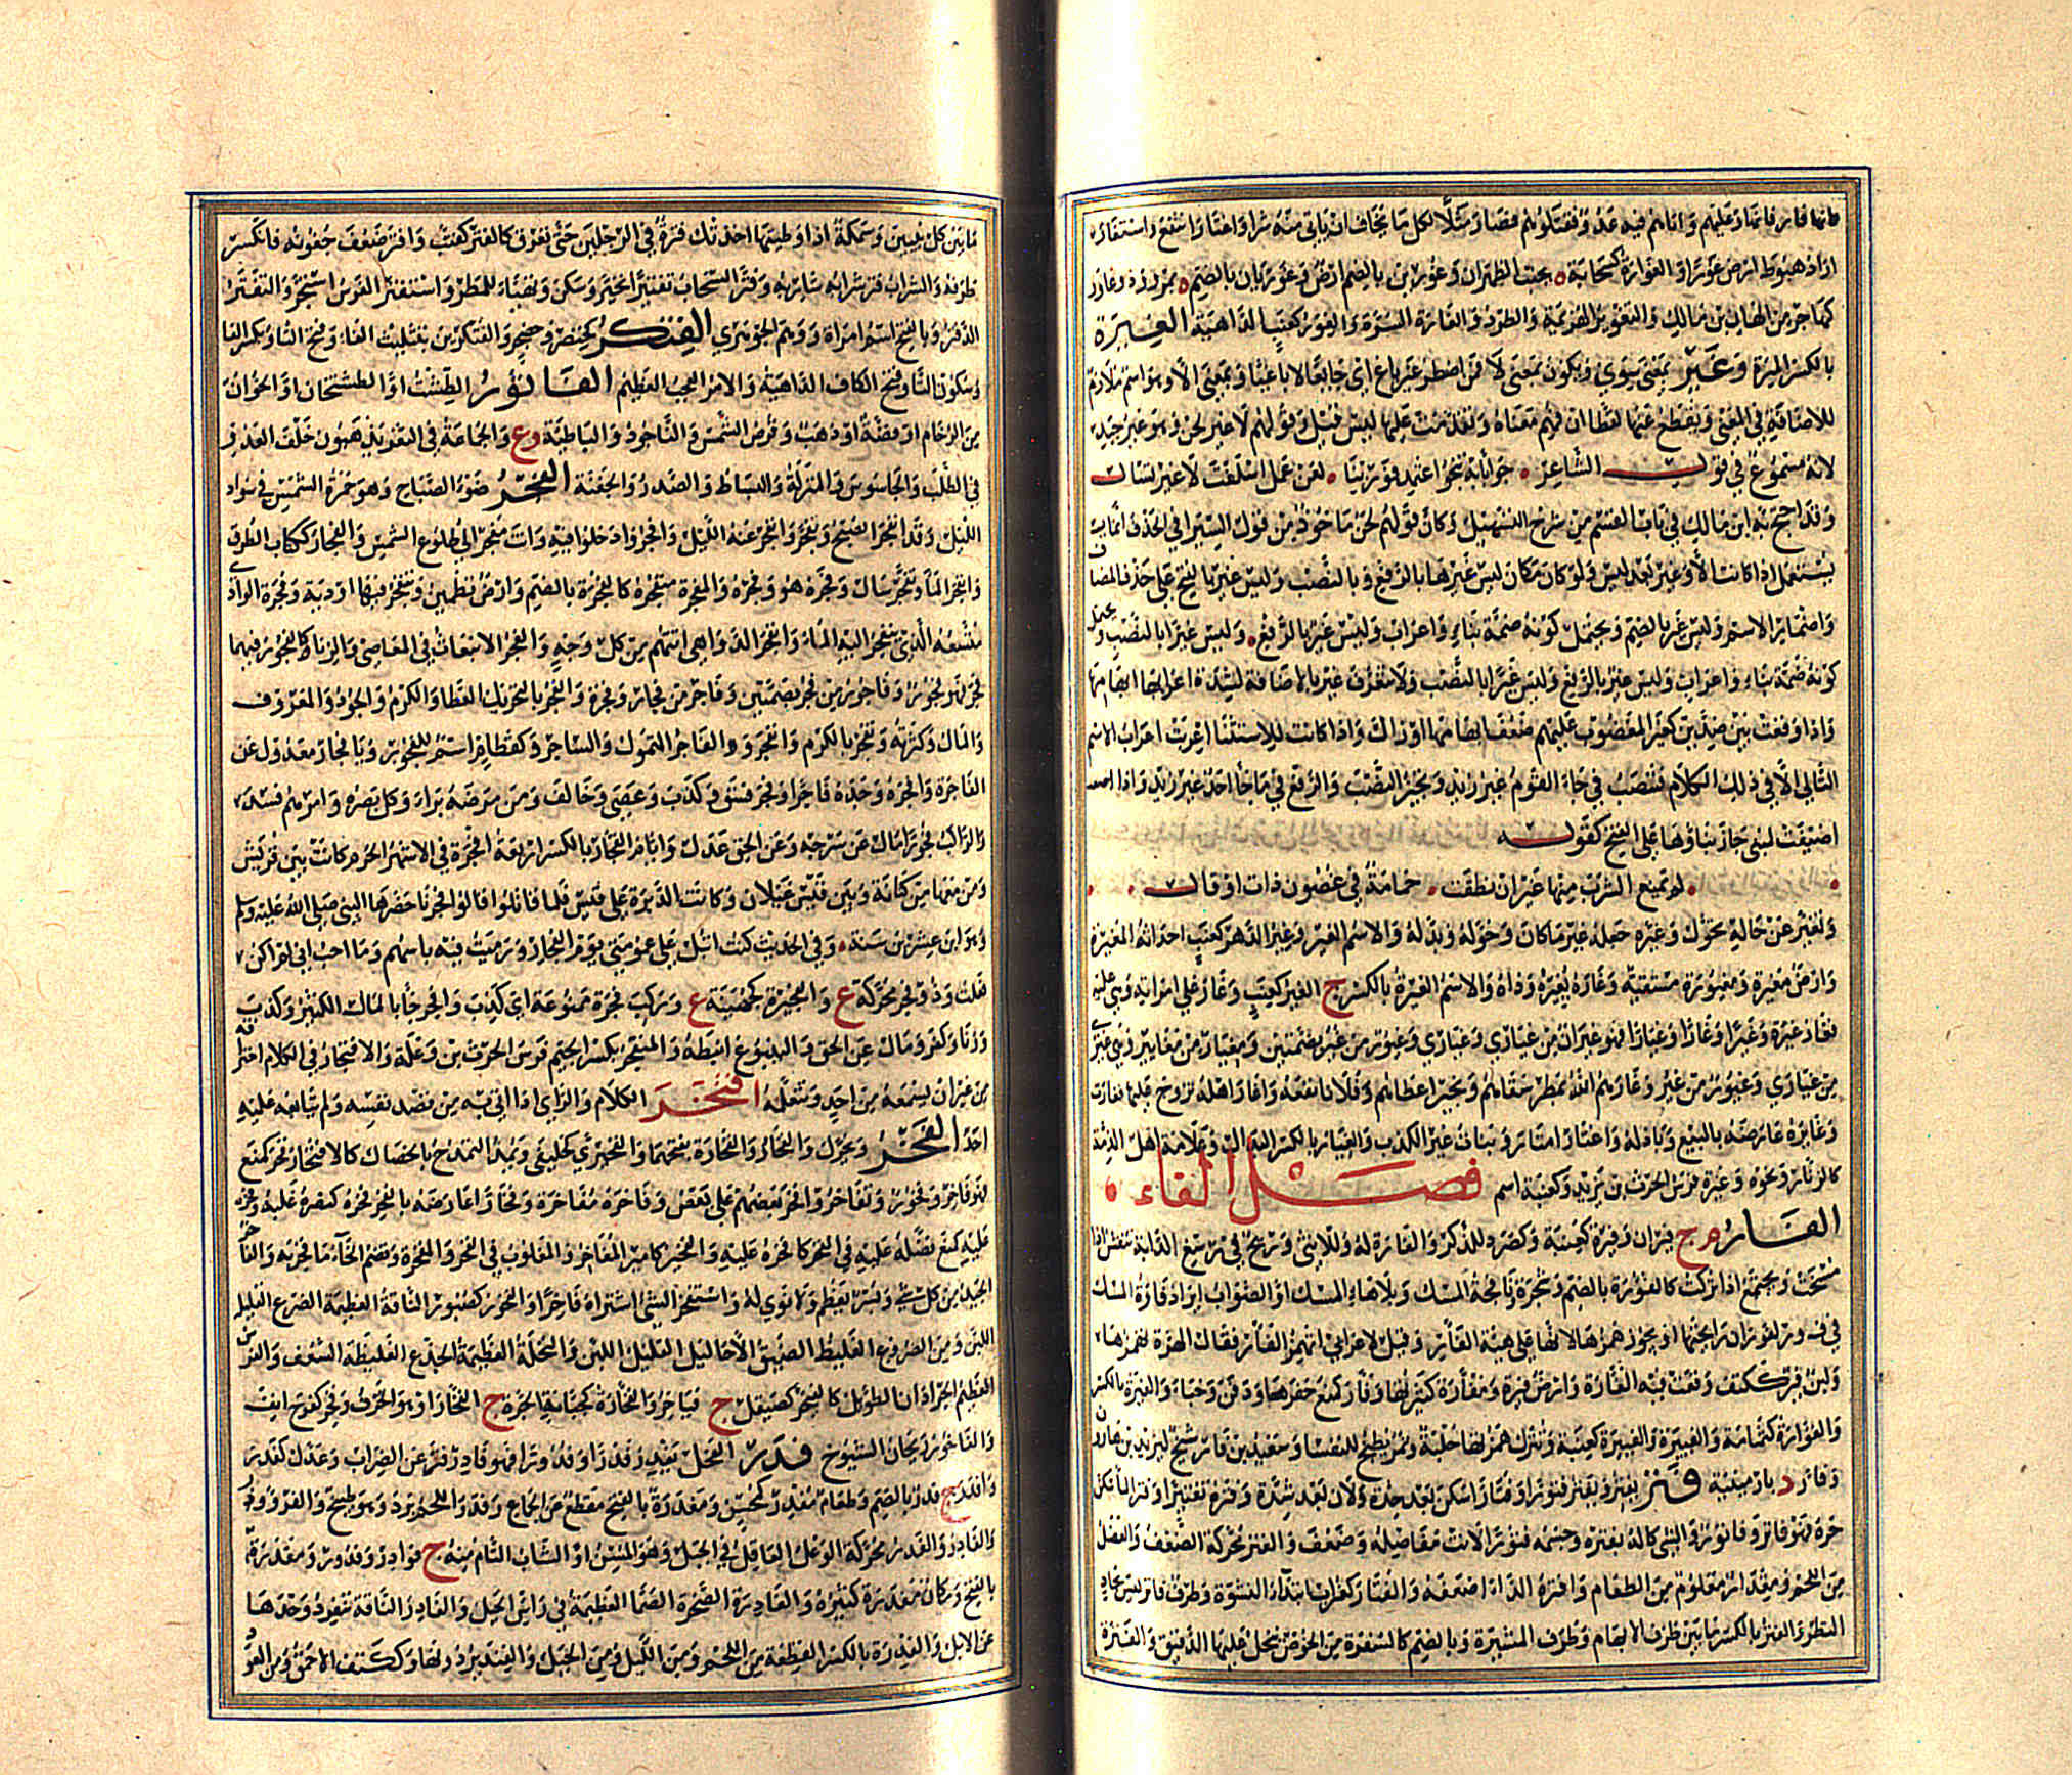 عليهم واتاهم فيه عدو فقتلوهم فصار مثلا لكل ما يخاف ان ياتي منه شر واغتار انتفع واستغار
اراد هبوط ارض غور او الغوارة كسحابة ة بجنب الظهران وغورين بالضم ارض وغوريان بالضم ة بمرو وذو غاور
كهاجر من الهان بن مالك والتغوير الهزيمة والطرد والغارة السرة والغور كعنب الداهية الغيرة
بالكسر الميرة وغير بمعنى سوي ويكون بمعنى لا فمن اضطر غير باغ اي جائعا لا باغيا وبمعنى الا وهو اسم ملازم
للاضافة في المعنى ويقطع عنها لفظا ان فهم معناه وتقدمت عليها ليس قيل وقولهم لا غير لحن وهو غير جيد
لانه مسموع في قول الشاعر جوابا به تنجو اعتمد فوربنا لعن عمل اسلفت لا غير تسال
وقد احتج به ابن مالك في باب القسم من شرح التسهيل وكان قولهم لحن ماخوذ من قول السيرافي الحذف انما
يستعمل اذا كانت الا وغير بعد ليس ولو كان مكان ليس غيرها بالرفع وبالنصب وليس غير بالفتح على حذف المضاف
واضمار الاسم وليس غير بالضم ويحتمل كونه ضمة بناء واعراب وليس غير بالرفع وليس غيرا بالنصب
كونه ضمة بناء واعراب وليس غير بالرفع وليس غيرا بالنصب ولا تتعرف غير بالاضافة لشدة ابهامها
واذا وقعت بين ضدين كغير المغضوب عليهم ضعف ابهامها او زال واذا كانت للاستثنا اعربت اعراب الاسم
التالي الا في ذلك الكلام فتنصب في جاء القوم غير زيد ويجيز النصب والرفع في ما جا احد غير زيد واذا
اضيفت لمبني جاز بناؤها على الفتح كقوله
لم يمنع الشرب منها غير ان نطقت حمامة في غصون ذات اوقال
وتغير عن حاله تحول وغيره جعله غير ما كان وحوله وبدله والاسم الغير وغير الدهر كعنب احداثه المغيرة
وارض مغيرة ومغيورة مسقية وغاره يغيره وداه والاسم الغيرة بالكسر ج الغير كعنب وغار على امراته وهي عليه
تغار غيرة وغيرا وغارا وغيارا فهو غيران من غيارى وغيارى وغيور من غير بضمتين ومغيار من مغايير وهي غيرى
من غيارى وغيور من غير وغارهم الله بمطر سقاهم وبخير اعطاهم وفلانا نفعه واغار اهله تزوج عليها فغارت
وغايره عارضه بالبيع وبادله واغتار امتار وبنات غير الكذب والغيار بالكسر البدال وعلامة اهل الذمة
كالزنار ونحوه وغيرة فرس الحرث بن يزيد وكعنبة اسم فصل الفاء
الفار م ج فيران وفيرة كعنبة وكصرد للذكر والفارة له وللانثى وريح في رسغ الدابة تنفش اذا
مسحت وتجتمع اذا تركت كالفورة بالضم وشجرة ونافجة المسك وبلا هاء المسك او الصواب ايراد فارة المسك
في ف و ر لفوران رائحتها او يجوز همزها لانها على هيئة الفار وقيل لاعرابي اتهمز الفار فقال الهرة تهمزها
ولبن فئر ككتف وقعت فيه الفارة وارض فئرة ومفارة كثيرتها وفار كمنع حفرها ودفن وخبا والفئرة بالكسر
والفوارة كثمامة والفئيرة والفيرة كعنبة وتترك همزتها حلبة وتمر يطبخ للنفسا وسعيد بن فار شيخ ليزيد بن هارون
وفار د بارمينية فتر يفتر ويفتر فتورا وفتارا سكن بعد حدة ولان بعد شدة وفتره تفتيرا وفتر الما سكن
حره فهو فاتر وفاتور والشي كاله بفتره وجسمه فتورا لانت مفاصله وضعف والفتر محركة الضعف والعضل
من اللحم ومقدار معلوم من الطعام وافتره الدا اضعفه والفتار كغراب ابتداء النشوة وطرف فاتر ليس بحاد
النظر والفتر بالكسر ما بين طرف الابهام وطرف المشيرة وبالضم كالسفرة من الخوص ينخل عليها الدقيق والفترة
ما بين كل نبيين وسمكة اذا وطيتها اخذتك فترة في الرجلين حتى تعرق كالفتر كعنب وافتر ضعف جفونه فانكسر
طرفه والشراب فتر شاربه وفتر السحاب تفتيرا تحير وسكن وتهيا للمطر واستفتر الفرس استجر والتفتر
الدفتر وبالفتح اسم امراة ووهم الجوهري الفتكر كخنصر وحضجر والفتكرين بتثليث الفا وفتح التا وبكسر الفا
وسكون التا وفتح الكاف الداهية والامر العجب العظيم الفاثور الطشت او الطشتخان او الخوان
من الرخام او فضة او ذهب وقرص الشمس والناجود والباطية وع والجماعة في الثغر يذهبون خلف العدو
في الطلب والجاسوس والمنزلة والبساط والصدر والجفنة الفجر ضوء الصباح وهو حمرة الشمس في سواد
الليل وقد انفجر الصبح وتفجر وانفجر عنه الليل وافجروا دخلوا فيه وانت مفجر الى طلوع الشمس والفجار ككتاب الطرق
وانفجر الما وتفجر سال وفجره هو وفجره والمفجرة منفجره كالفجرة بالضم وارض تطمئن وتنفجر فيها اودية وفجرة الوادي
متسعه الذي ينفجر اليه الماء وانفجر الدواهي اتتهم من كل وجه والفجر الانبعاث في المعاصي والزنا كالفجور فيهما
فجر فهو فجور وفاجور من فجر بضمتين وفاجر من فجار وفجرة والفجر بالتحريك العطا والكرم والجود والمعروف
والمال وكثرته وتفجر بالكرم وانفجر والفاجر المتمول والساحر وكقطام اسم للفجور ويا فجار معدول عن
الفاجرة وافجره وجده فاجرا وفجر فسق وكذب وعصى وخالف ومن مرضه برا وكل بصره وامرهم فسد
والراكب فجورا مال عن سرجه وعن الحق عدل وايام الفجار بالكسر اربعة افجرة في الاشهر الحرم كانت بين قريش
ومن معها من كنانة وبين قيس عيلان وكانت الدبرة على قيس فلما قاتلوا قالوا فجرنا حضرها النبي صلى الله عليه وسلم
وهو ابن عشرين سنة وفي الحديث كنت انبل على عمومتي يوم الفجار ورميت فيه باسهم وما احب اني لم اكن
فعلت وذو فجر محركة ع والفجيرة كجهينة ع وركب فجرة ممنوعة اي كذب وافجر جا بالمال الكثير وكذب
وزنا وكفر ومال عن الحق والينبوع انبطه والمتفجر بكسر الجيم فرس الحرث بن وعلة والافتجار في الكلام اختراقه
من غير ان يسمعه من احد ويتعلمه افتحر الكلام والراي اذا اتى به من قصد نفسه ولم يتابعه عليه
احد الفخر ويحرك والفخار والفخارة بفتحهما والفخيرى كخليفى ويمد التمدح بالخصال كالافتخار فخر كمنع
فهو فاخر وفخور وتفاخر وافخر بعضهم على بعض وفاخره مفاخرة وفخارا عارضه بالفخر ففخره كنصره غلبه وفخره
عليه كمنع فضله عليه في الفخر كافخره عليه والفخير كامير المفاخر والمغلوب في الفخر والمفخرة وتضم الخاء ما فخر به والفاخر
الجيد من كل شيء وبسر يعظم ولا نوى له واستفخر الشي اشتراه فاخرا والفخور كصبور الناقة العظيمة الضرع القليلة
اللبن ومن الضروع الغليظ الضيق الاحاليل القليل اللبن والنخلة العظيمة الجذع الغليظة السعف والفرس
العظيم الجردان الطويل كالفيخر كصيقل ج فياخر والفخارة كجبانة الجرة ج الفخار او هو الخزف وفخر كفرح انف
والفاخور ريحان الشيوخ فدر الفحل يفدر فدرا وفدورا فهو فادر فتر عن الضراب وعدل كفدر
وافدر ج فدر بالضم وطعام مفدر كمحسن ومفدرة بالفتح مقطع عن الجماع وفدر اللحم برد وهو طبيخ
والفادر والفدر محركة الوعل العاقل في الجبل وهو المسن او الشاب التام منه ج فوادر وفدور ومفدرة
بالفتح ومكان مفدرة كثيره والفادرة الصخرة الصما العظيمة في راس الجبل والفادر الناقة تنفرد وحدها
عن الابل والفدرة بالكسر القطعة من اللحم ومن الليل ومن الجبل والفنديرة دونها وككتف الاحمق ومن العود